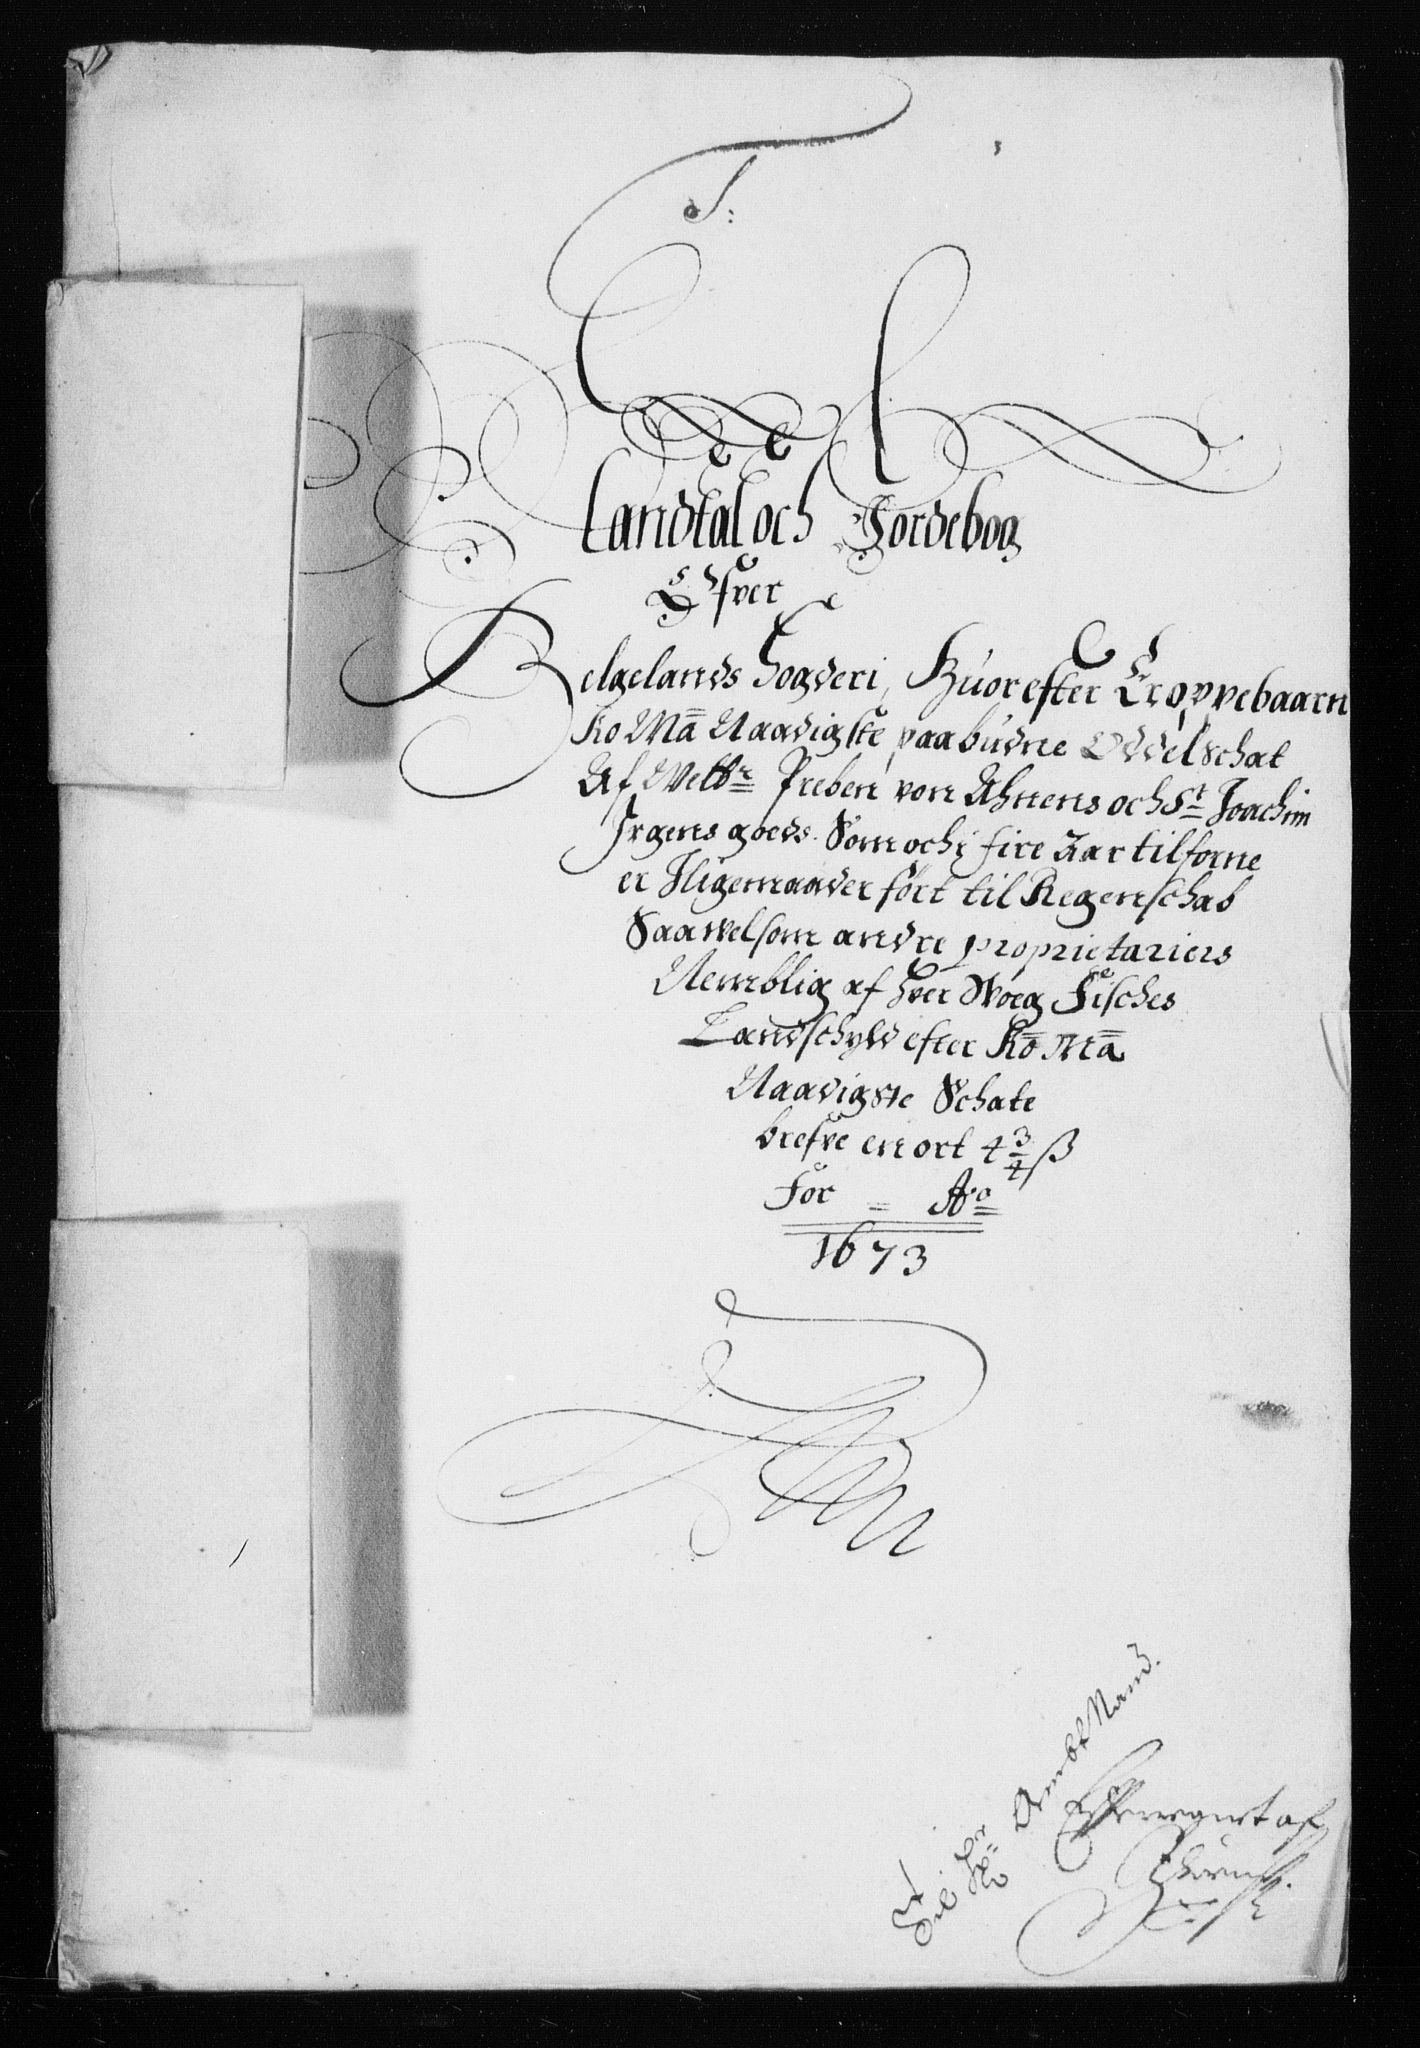 J:
Landtal och Jordebog
Ofver
Helgelands fogderi, Huorefter Er oppebaarn
Ko Ma Naadigste paabudne Oddelschat
Af Welbr: Preben von Ahnens och Sr Joachim
Irgens goeds. Som och j fire Aar tilforne
er Jligemaader fört til Regenschab
Saawelsom andre proprietariers
Nemblig af hver Woeg Fisches
Landschyld efter Ko Ma
Naadigste Schate
brefve en ort 4 3/4 ß
For Ao
1673
Til Hr Ambt Mand.